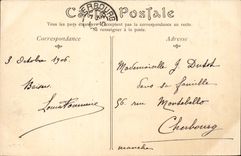 Carte Postale
CHERBOURG
Tous les pays étrangers n'acceptent pas la correspondance au recto.
Se renseigner à la poste.
Correspondance
Adresse
3 Octobre 1906
Mademoiselle J
dans sa famille
Baisers
56 rue Montebello
Cherbourg
manche